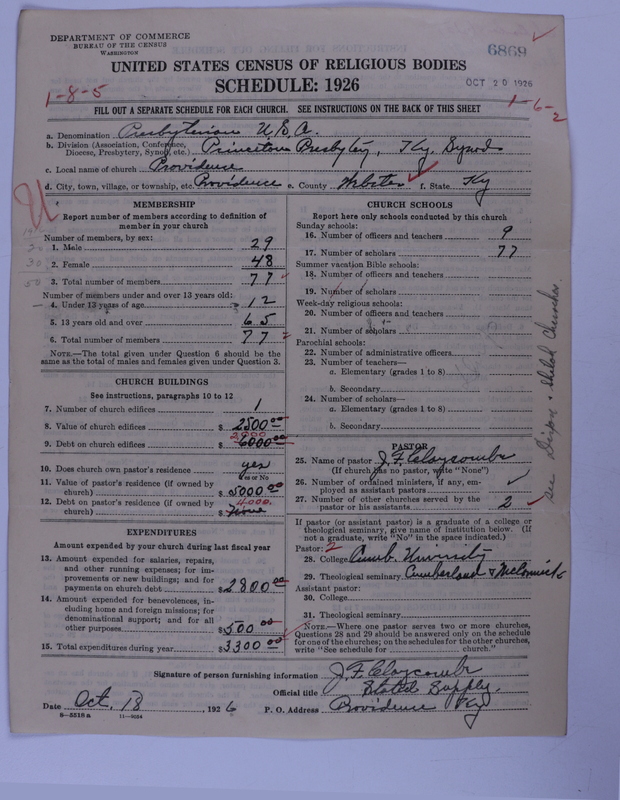 DEPARTMENT OF COMMERCE
BUREAU OF THE CENSUS
WASHINGTON
6869
UNITED STATES CENSUS OF RELIGIOUS BODIES
SCHEDULE: 1926
OCT 20 1926
1-8-5
1-6-2
FILL OUT A SEPARATE SCHEDULE FOR EACH CHURCH. SEE INSTRUCTIONS ON THE BACK OF THIS SHEET
a. Denomination Presbyterian U.S.A.
b. Division (Association, Conference, Diocese, Presbytery, Synod, etc.) Princeton Presbytery, Ky. Synod
c. Local name of church Providence
d. City, town, village, or township, etc. Providence e. County Webster f. State Ky
MEMBERSHIP
Report number of members according to definition of member in your church
Number of members, by sex:
1. Male 29
2. Female 48
3. Total number of members 77
Number of members under and over 13 years old:
4. Under 13 years of age 12
5. 13 years old and over 65
6. Total number of members 77
NOTE.—The total given under Question 6 should be the same as the total of males and females given under Question 3.
CHURCH BUILDINGS
See instructions, paragraphs 10 to 12
7. Number of church edifices 1
8. Value of church edifices $ 2500 00
9. Debt on church edifices $ 6000 00
10. Does church own pastor's residence yes
Yes or No
11. Value of pastor's residence (if owned by church) $ 5000 00
12. Debt on pastor's residence (if owned by church) $ 4000. None
EXPENDITURES
Amount expended by your church during last fiscal year
13. Amount expended for salaries, repairs, and other running expenses; for improvements or new buildings; and for payments on church debt $ 2800 00
14. Amount expended for benevolences, including home and foreign missions; for denominational support; and for all other purposes $ 500 00
15. Total expenditures during year $ 3300 00
CHURCH SCHOOLS
Report here only schools conducted by this church
Sunday schools:
16. Number of officers and teachers 9
17. Number of scholars 77
Summer vacation Bible schools:
18. Number of officers and teachers
19. Number of scholars
Week-day religious schools:
20. Number of officers and teachers
21. Number of scholars
Parochial schools:
22. Number of administrative officers
23. Number of teachers—
a. Elementary (grades 1 to 8)
b. Secondary
24. Number of scholars—
a. Elementary (grades 1 to 8)
b. Secondary
see Dixon & Shiloh Churches
PASTOR
25. Name of pastor J. F. Claycombe
(If church has no pastor, write "None")
26. Number of ordained ministers, if any, employed as assistant pastors
27. Number of other churches served by the pastor or his assistants 2
If pastor (or assistant pastor) is a graduate of a college or theological seminary, give name of institution. (If not a graduate, write "No" in the space indicated.)
Pastor: 2
28. College Cumb. University
29. Theological seminary Cumberland & McCormick
Assistant pastor:
30. College
31. Theological seminary
NOTE.—Where one pastor serves two or more churches, Questions 28 and 29 should be answered only on the schedule for one of the churches; on the schedules for the other churches, write "See schedule for church."
Signature of person furnishing information J. F. Claycombe
Official title Stated Supply.
Date Oct, 18, 1926 P. O. Address Providence Ky
8-5518a 11-9034